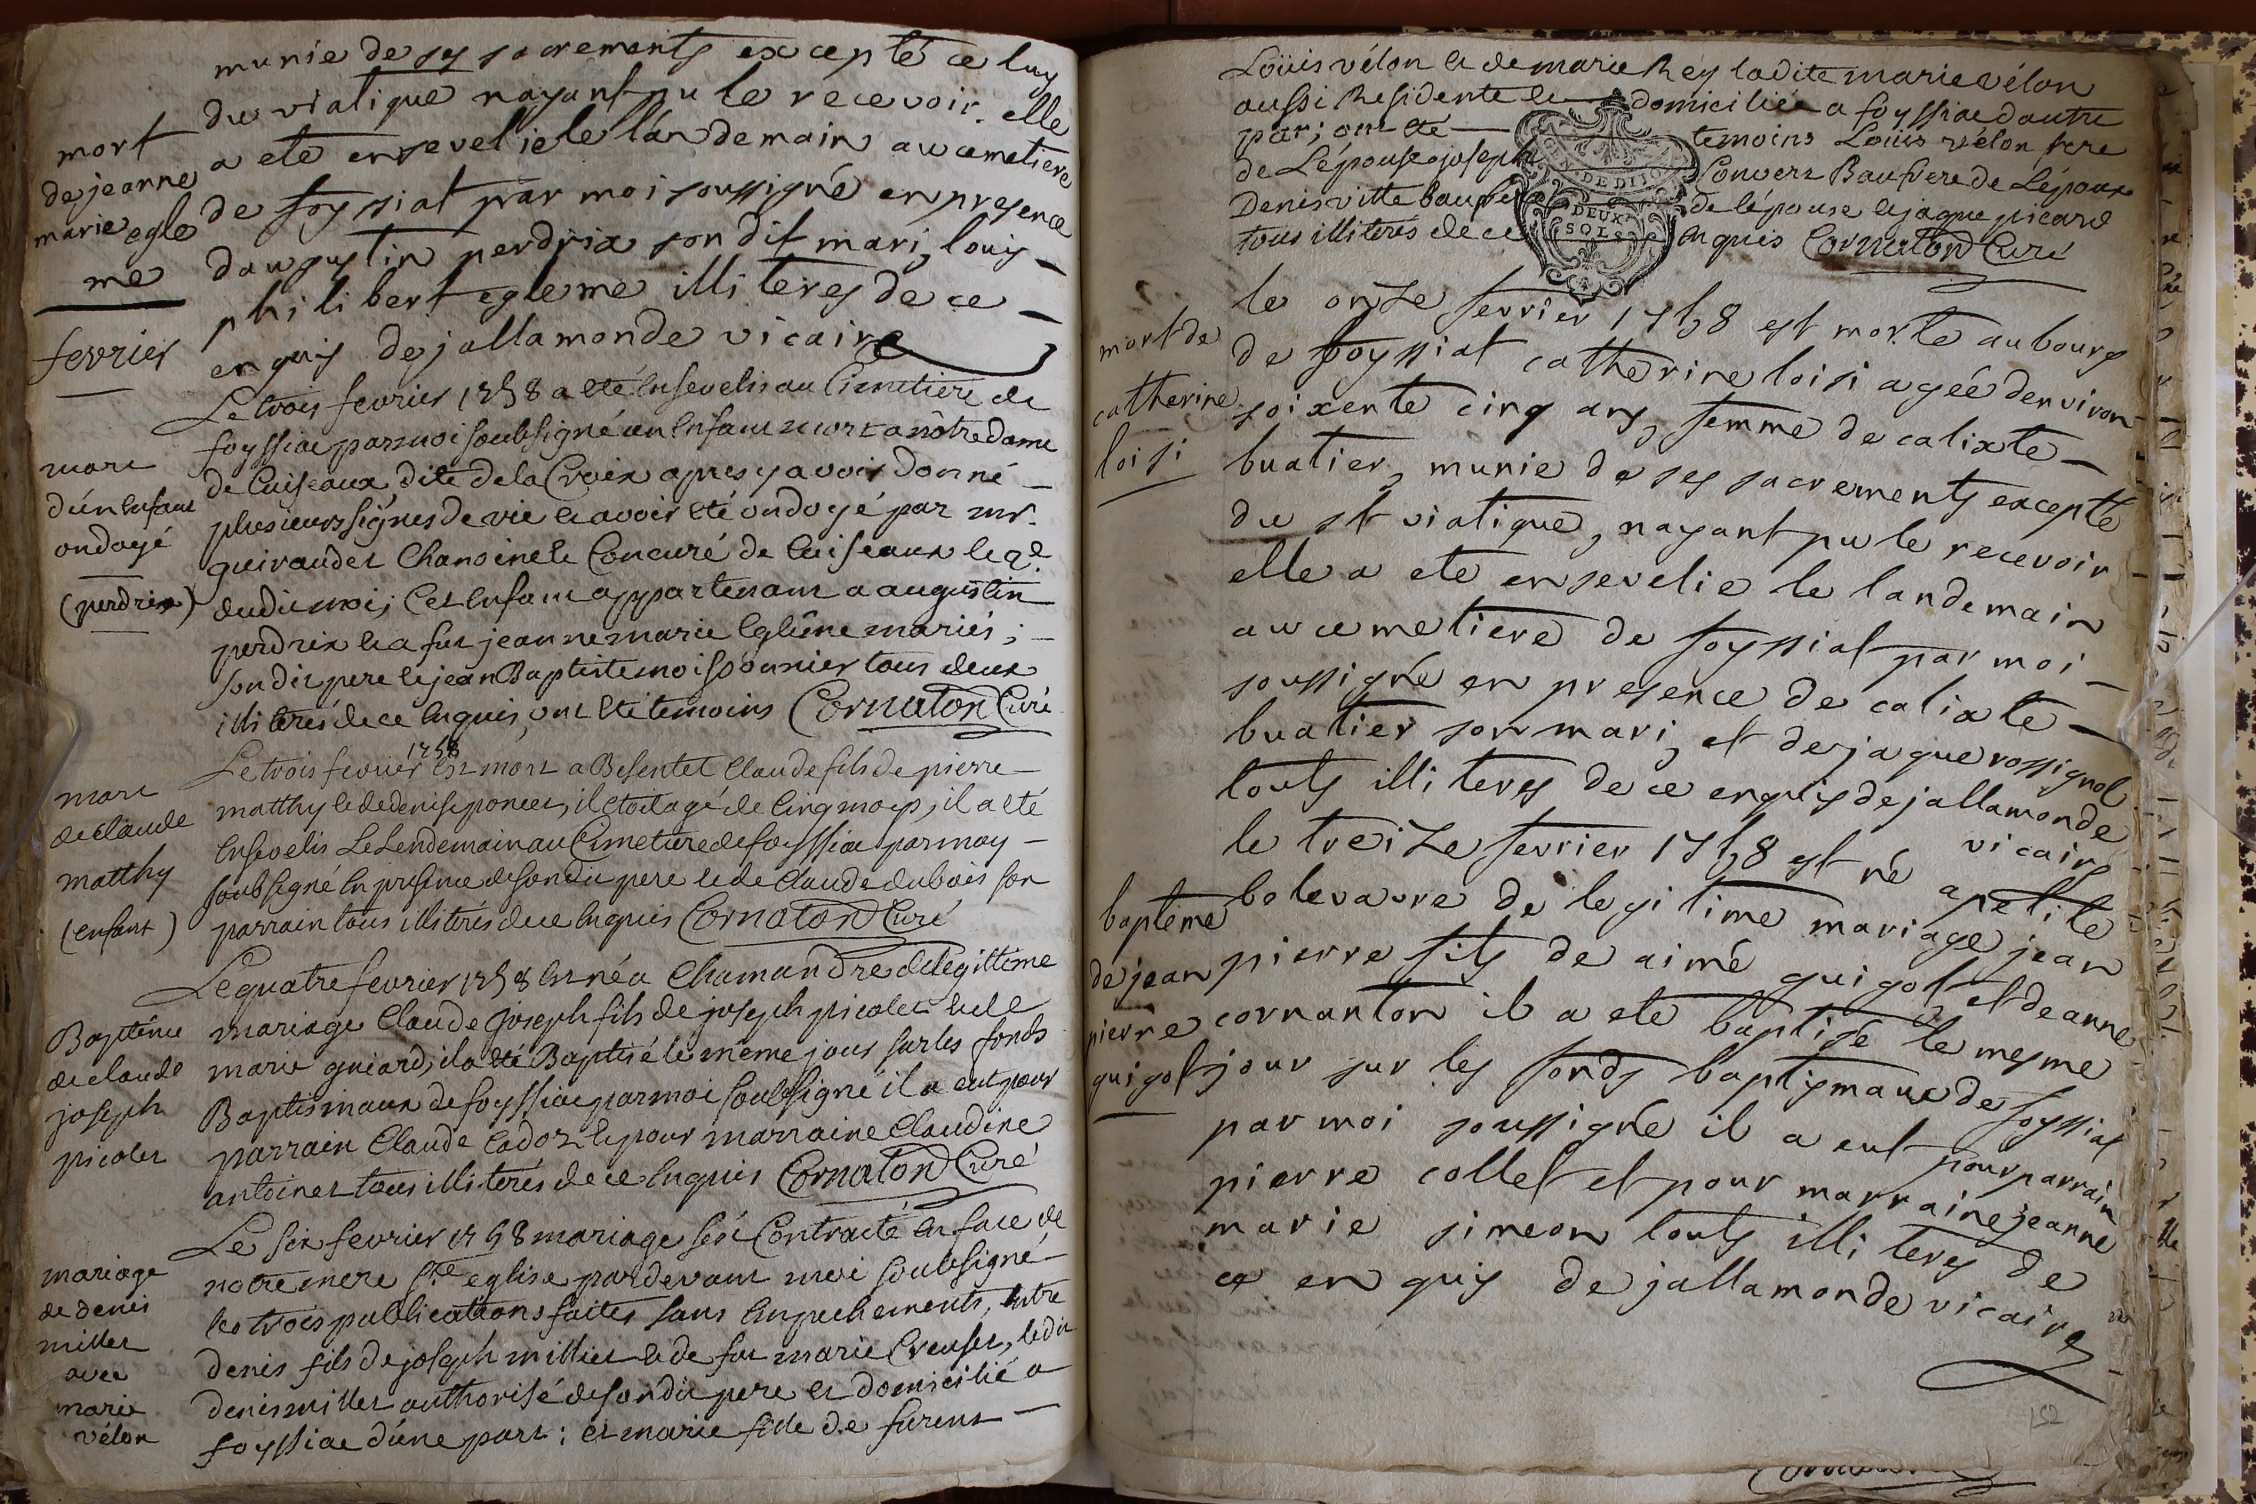 munie de sy sacrements excepté celuy
du viatique nayant pu le recevoir. elle
mort
a eté ensevelie le landemain au cemetiere
de jeanne
de foyssiat par moi soussigné en presence
marie egle
me
daugustin perdrix son dit mari, louis
philibert egleme illiteres de ce
enquis dejallamonde vicaire
fevrier
Le trois fevrier 1758 a eté Ensevelis au Cimetiere de
foyssiac par moi soubsigné un Enfant mort a nôtre dame
mort
de Cuiseaux dite de la Croix apres y avoir donné
d'un Enfant
plusieurs signes de vie et avoir eté ondoyé par mr.
ondoyé
guiraudet Chanoine et Concuré de Cuiseaux le 2e.
(perdrix)
dudit moi; Cet Enfant appartenant a augustin
perdrix et a fut jeanne marie Eglême mariés;
son dit pere et jean Baptiste moissonnier tous deux
illiterés de ce Enquis, ont eté temoins Cornaton Curé
Le trois fevrier 1758 Est mort a Besentet Claude fils de pierre
mort
matthy et de denise poncet, il etoit agé de Cinq moys, il a eté
de Claude
Ensevelis Le Lendemain au Cimetiere de foyssiac par moy
matthy
soubsigné En presence de son dit pere et de Claude dubois son
(enfant)
parrain tous illiterés de ce Enquis Cornaton Curé
Le quatre fevrier 1758 Est né a Chamandre de legittime
Baptême
mariage Claude joseph fils de joseph picolet et de
de claude
marie guiard, il a eté Baptisé le même jour sur les fonds
joseph
Baptismaux de foyssiac par moi soubsigné il a eut pour
picolet
parrain Claude Cadoz et pour marraine Claudine
antoinet tous illiterés de ce Enquis Cornaton Curé
Le six fevrier 1758 mariage s'est Contracté En face de
mariage
notre mere Ste eglise pardevant moi soubsigné
de denis
les trois publications faites sans Enpechements, Entre
millet
denis fils de joseph millet et de fut marie Creuset, ledit
avec
denis millet authorisé de son dit pere et domicilié a
marie
vélon
foyssiac d'une part; et marie fille de furent
Loüis vélon et de marie Rey ladite marie vélon
aussi Residente et domiciliée a foyssiac dautre
part; ont eté temoins Loüis vélon frere
de L'épouse joseph Convert Baufrere de L'époux
Denis vitte baufrere de l'épouse et jaque picard
tous illiteres de ce Enquis Cornaton Curé
GEN. DE DIJON
DEUX
SOLS
le onze fevrier 1758 est morte au bourg
mort de
de foyssiat catherine loisi agée denviron
catherine
soixente cinq ans, femme de calixte
loisi
buatier, munie de ses sacrements excepté
du st viatique, nayant pu le recevoir
elle a eté ensevelie le landemain
au cemetiere de foyssiat par moi
soussigné en presence de calixte
buatier son mari, et de jaque rossignol
touts illiteres de ce enquis dejallamonde
vicaire
le treize fevrier 1758 est né apetite
baptême
bolevavre de legitime mariage jean
de jean
pierre fils de aimé guigot et de anne
pierre
cornanton il a eté baptisé le mesme
guigot
jour sur les fonds baptismaux de foyssiat
par moi soussigné il a eut pour parrain
pierre collet et pour marraine jeanne
marie simeon touts illiteres de
ce enquis dejallamonde vicaire
152